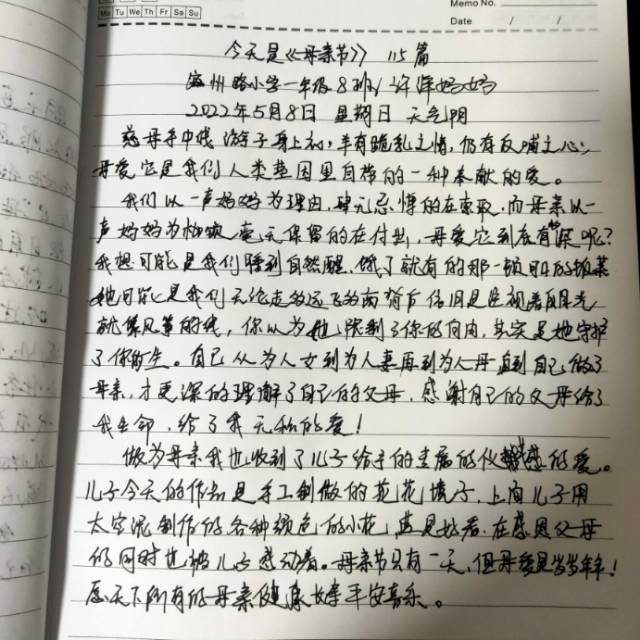 Memo No.
Mo Tu We Th Fr Sa Su
Date / /
今天是《母亲节》 115篇
州路小学一年级8班许泽妈妈
2022年5月8日 星期日 天气阴
慈母手中线 游子身上衣,羊有跪乳之情,仍有反哺之心;
母爱它是我们人类基因里自带的一种奉献的爱。
我们以一声妈妈为理由,肆无忌惮的在索取,而母亲以一
声妈妈为枷锁毫无保留的在付出,母爱它到底有多深呢?
我想可能是我们睡到自然醒,饿了就有的那一顿可口的饭菜
她可能是我们无论走多远飞的高背后依旧是注视着目光
就像风筝的线,你以为她限制了你的自由,其实是她守护
了你的一生。自己从为人女到为人妻再到为人母直到自己做了
母亲,才更深的理解了自己的父母,感谢自己的父母给了
我生命,给了我无私的爱!
做为母亲我也收到了儿子给予的专属的仪式感的爱。
儿子今天的作品是手工制做的花花镜子,上面儿子用
太空泥制作的各种颜色的小花,真是好看,在感恩父母
的同时也被儿子感动着。母亲节只有一天,但母爱是岁岁年年!
愿天下所有的母亲健康 平安喜乐。